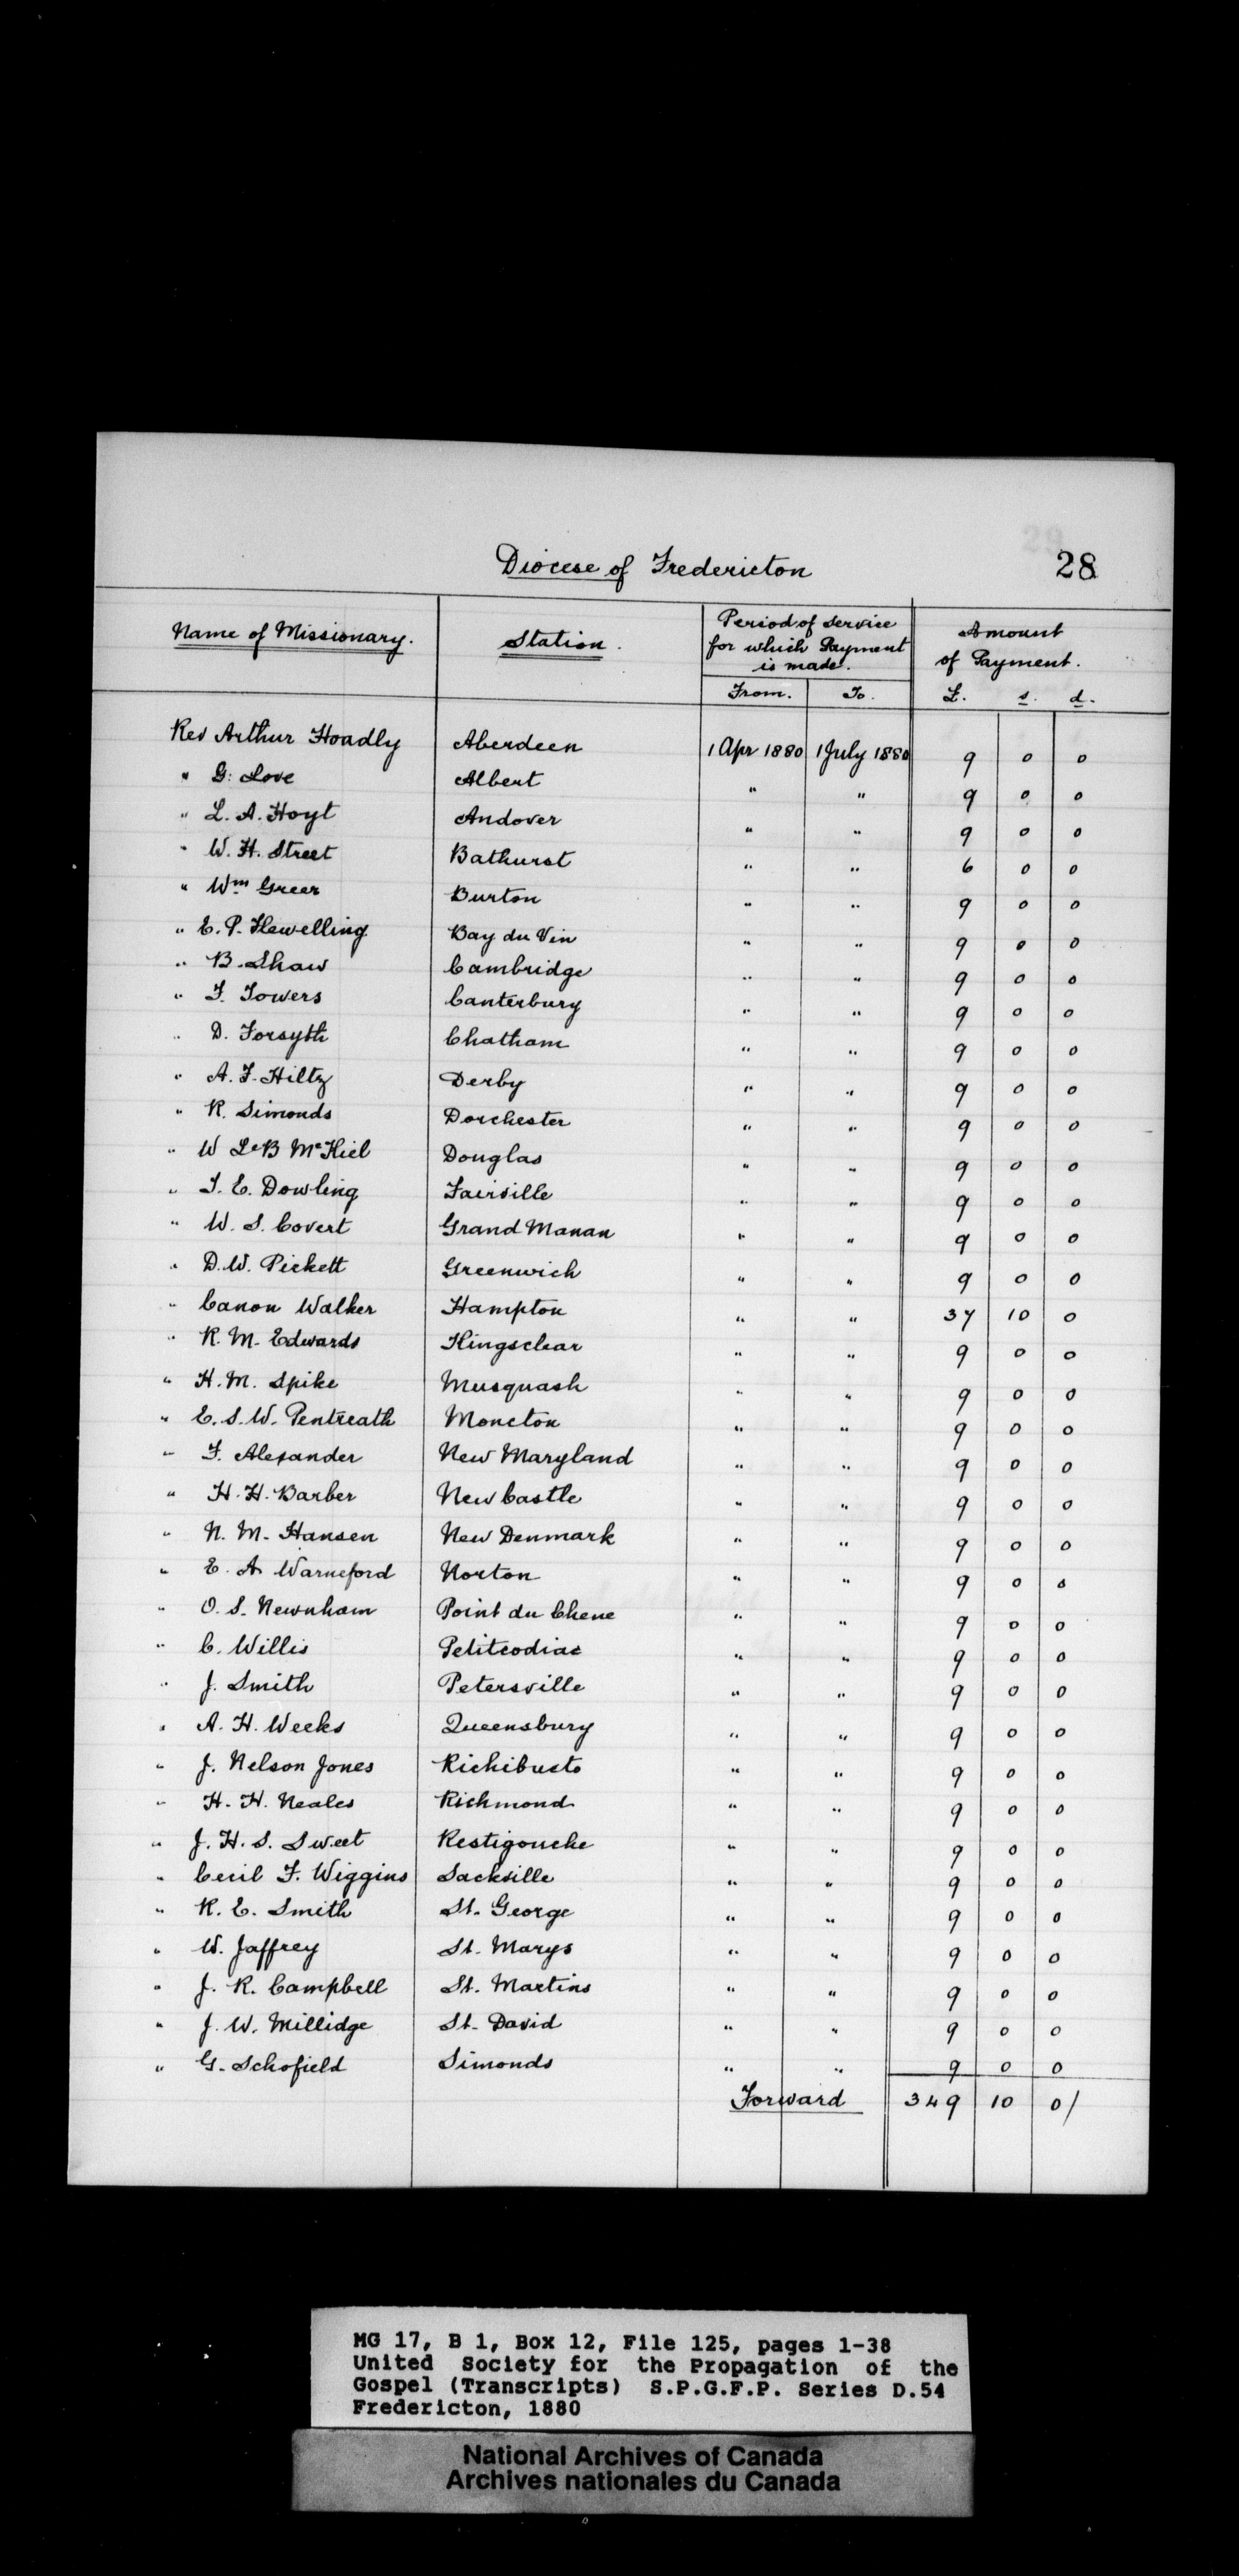 Diocese of Fredericton
28
Name of Missionary. Station. Period of service for which Payment is made. Amount of Payment.
From. To. £. s. d.
Rev Arthur Hoadly Aberdeen 1 Apr 1880 1 July 1880 9 0 0
" G. Love Albert " " 9 0 0
" L. A. Hoyt Andover " " 9 0 0
" W. H. Street Bathurst " " 6 0 0
" Wm Greer Burton " " 9 0 0
" E. P. Flewelling Bay du Vin " " 9 0 0
" B. Shaw Cambridge " " 9 0 0
" F. Towers Canterbury " " 9 0 0
" D. Forsyth Chatham " " 9 0 0
" A. F. Hiltz Derby " " 9 0 0
" R. Simonds Dorchester " " 9 0 0
" W LeB McKiel Douglas " " 9 0 0
" T. E. Dowling Fairville " " 9 0 0
" W. S. Covert Grand Manan " " 9 0 0
" D. W. Pickett Greenwich " " 9 0 0
" Canon Walker Hampton " " 37 10 0
" R. M. Edwards Kingsclear " " 9 0 0
" H. M. Spike Musquash " " 9 0 0
" E. S. W. Pentreath Moncton " " 9 0 0
" F. Alexander New Maryland " " 9 0 0
" H. H. Barber New Castle " " 9 0 0
" N. M. Hansen New Denmark " " 9 0 0
" E. A. Warneford Norton " " 9 0 0
" O. S. Newnham Point du Chene " " 9 0 0
" C. Willis Petitcodiac " " 9 0 0
" J. Smith Petersville " " 9 0 0
" A. H. Weeks Queensbury " " 9 0 0
" J. Nelson Jones Richibucto " " 9 0 0
" H. H. Neales Richmond " " 9 0 0
" J. H. S. Sweet Restigouche " " 9 0 0
" Cecil F. Wiggins Sackville " " 9 0 0
" R. E. Smith St. George " " 9 0 0
" W. Jaffrey St. Marys " " 9 0 0
" J. R. Campbell St. Martins " " 9 0 0
" J. W. Millidge St. David " " 9 0 0
" G. Schofield Simonds " " 9 0 0
Forward 349 10 0/
MG 17, B 1, Box 12, File 125, pages 1-38
United Society for the Propagation of the
Gospel (Transcripts) S.P.G.F.P. Series D.54
Fredericton, 1880
National Archives of Canada
Archives nationales du Canada